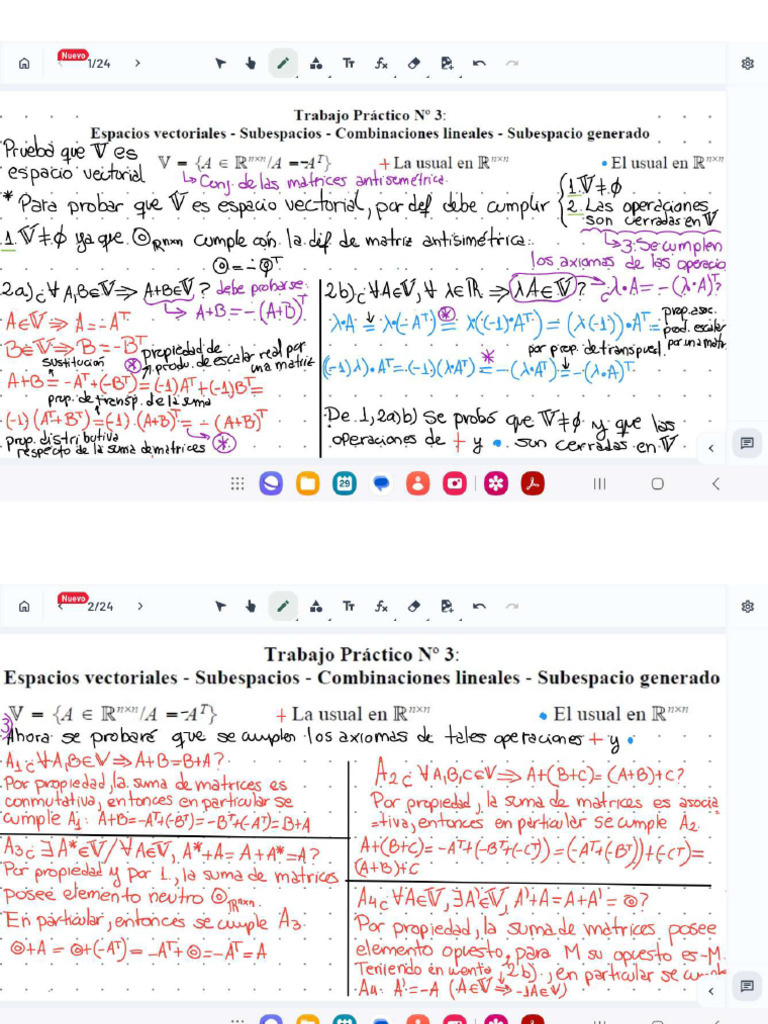 Nuevo
1/24
Trabajo Práctico N° 3:
Espacios vectoriales - Subespacios - Combinaciones lineales - Subespacio generado
Prueba que 𝕍 es
espacio vectorial
𝕍 = {A ∈ ℝⁿˣⁿ/A = -Aᵀ} + La usual en ℝⁿˣⁿ • El usual en ℝⁿˣⁿ
↳ Conj. de las matrices antisemétrica.
* Para probar que 𝕍 es espacio vectorial, por def debe cumplir
1. 𝕍 ≠ ∅
2. Las operaciones
son cerradas en 𝕍
↳ 3. Se cumplen
los axiomas de las operacio
1. 𝕍 ≠ ∅ ya que ⓞ ℝnxn cumple con la def de matriz antisimétrica:
ⓞ = -ⓞᵀ
2a) ¿∀ A,B∈𝕍 ⇒ A+B∈𝕍? debe probarse:
↳ A+B = -(A+B)ᵀ
A∈𝕍 ⇒ A = -Aᵀ
B∈𝕍 ⇒ B = -Bᵀ
sustitución
propiedad de
produ. de escalar real por
una matriz
A+B = -Aᵀ+(-Bᵀ) = (-1)Aᵀ+(-1)Bᵀ =
prop. de transp. de la suma
(-1)(Aᵀ+Bᵀ) = (-1).(A+B)ᵀ = -(A+B)ᵀ
prop. distributiva
respecto de la suma de matrices
↳ *
2b) ¿∀A∈𝕍, ∀ λ∈ℝ ⇒ λA∈𝕍? → ¿λ•A = -(λ•A)ᵀ?
λ•A = λ•(-Aᵀ) = λ((-1)•Aᵀ) = (λ(-1))•Aᵀ =
prop. asoc.
prod. escalar
por una matr
por prop. de transpues.
(-1)λ).Aᵀ = (-1)(λAᵀ) = -(λ•Aᵀ) = -(λ•A)ᵀ
De 1, 2a)b) se probó que 𝕍≠∅ y que las
operaciones de + y • son cerradas en 𝕍
29
Nuevo
2/24
Trabajo Práctico N° 3:
Espacios vectoriales - Subespacios - Combinaciones lineales - Subespacio generado
𝕍 = {A ∈ ℝⁿˣⁿ/A = -Aᵀ} + La usual en ℝⁿˣⁿ • El usual en ℝⁿˣⁿ
3) Ahora se probaré que se cumplen los axiomas de tales operaciones + y •
A₁ ¿∀A,B∈𝕍 ⇒ A+B = B+A?
Por propiedad, la suma de matrices es
conmutativa, entonces en particular se
cumple A₁: A+B = -Aᵀ+(-Bᵀ) = -Bᵀ+(-Aᵀ) = B+A
A₂ ¿∀A,B,C∈𝕍 ⇒ A+(B+C) = (A+B)+C?
Por propiedad, la suma de matrices es asocia
=tiva, entonces en particular se cumple A₂.
A+(B+C) = -Aᵀ+(-Bᵀ+(-Cᵀ)) = (-Aᵀ+(-Bᵀ))+(-Cᵀ) =
(A+B)+C
A₃ ¿∃A*∈𝕍/∀A∈𝕍, A*+A = A+A* = A?
Por propiedad y por 1., la suma de matrices
posee elemento neutro ⓞ ℝnxn.
En particular, entonces se cumple A₃.
ⓞ+A = ⓞ+(-Aᵀ) = -Aᵀ+ⓞ = -Aᵀ = A
A₄ ¿∀A∈𝕍, ∃A'∈𝕍, A'+A = A+A' = ⓞ?
Por propiedad, la suma de matrices posee
elemento opuesto, para M su opuesto es -M.
Teniendo en cuenta 2b), en particular se cumple
A₄: A' = -A (A∈𝕍 ⇒ -1A∈𝕍)